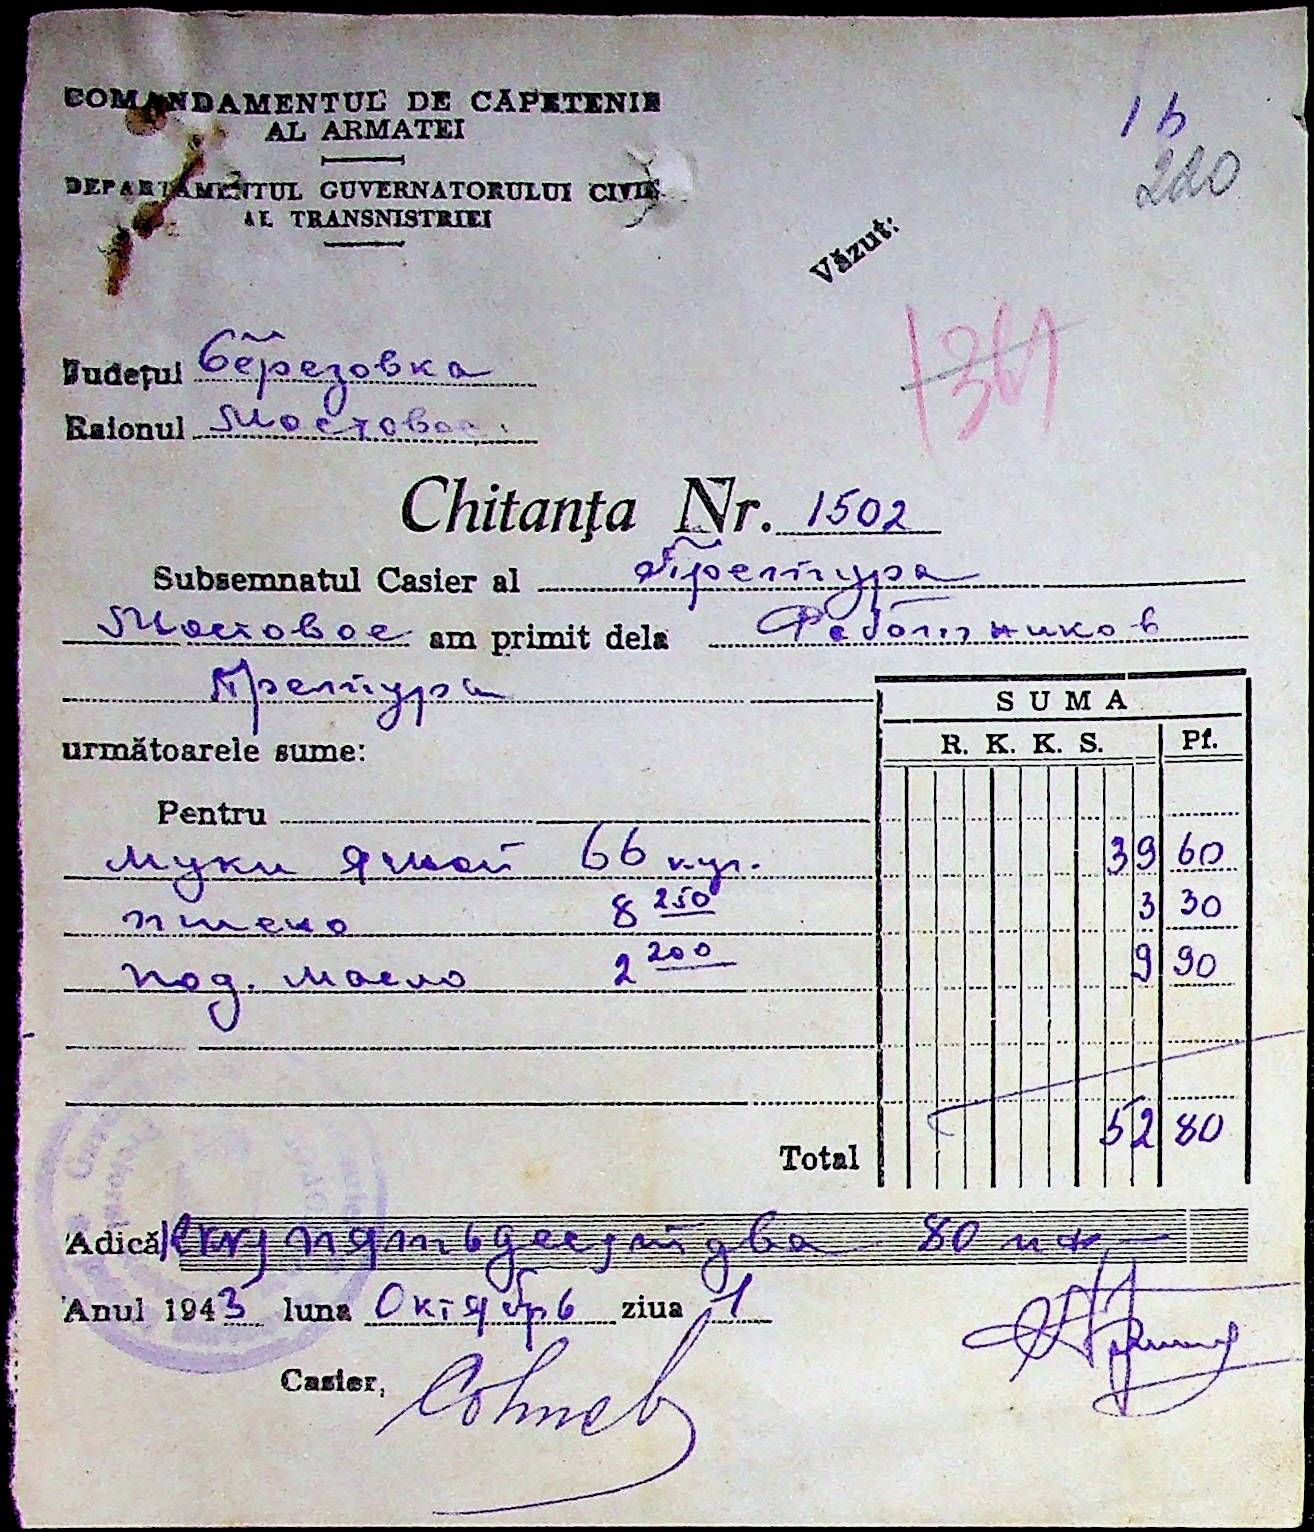 COMANDAMENTUL DE CAPETENIE
AL ARMATEI
DEPARTAMENTUL GUVERNATORULUI CIVIL
AL TRANSNISTRIEI
16
220
Văzut:
1361
Județul Березовка
Raionul Мостовое
Chitanța Nr. 1502
Subsemnatul Casier al Претура
Мостовое am primit dela Работников
Претура
următoarele sume:
SUMA
R. K. K. S. Pf.
Pentru
муки ячной 66 кгр. 39 60
пшено 8 250 3 30
под. масло 2 200 9 90
Total 52 80
Adică пятьдесят два 80 пф
Anul 1943 luna Октябрь ziua 1
Casier,